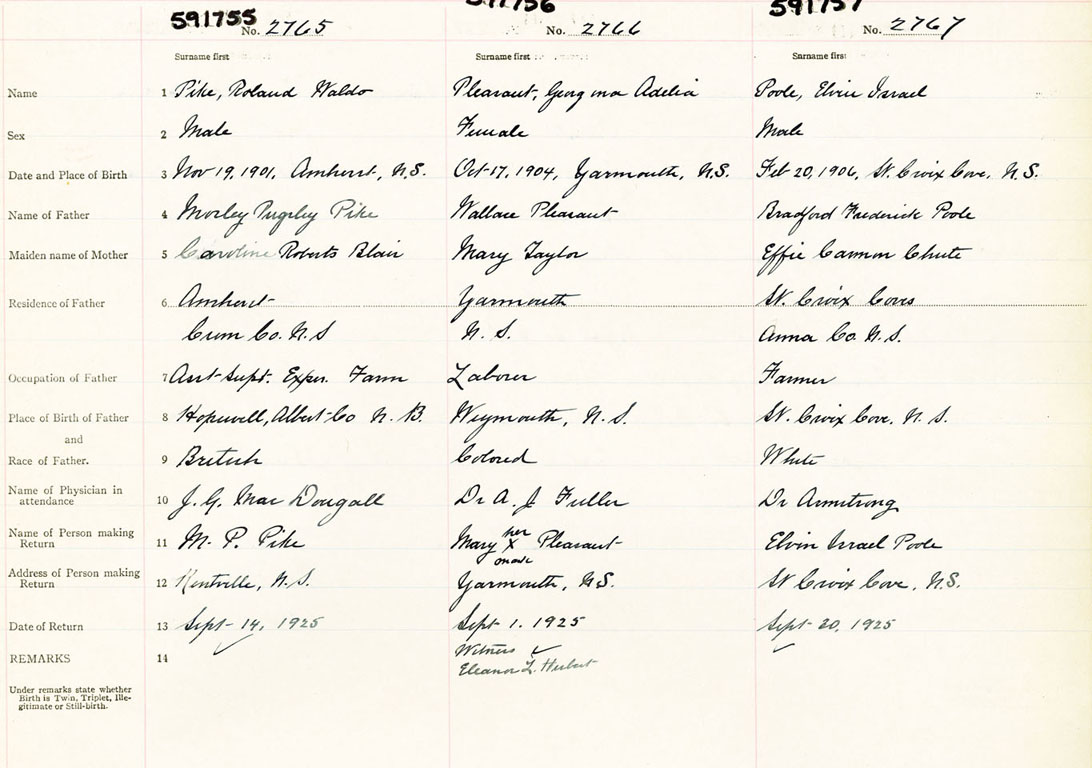 591755 No. 2765 591756 No. 2766 591757 No. 2767
Surname first Surname first Surname first
Name 1 Pike, Roland Waldo Pleasant, Georgina Adelia Poole, Elvin Israel
Sex 2 Male Female Male
Date and Place of Birth 3 Nov 19, 1901, Amherst, N.S. Oct 17, 1904, Yarmouth, N.S. Feb 20, 1906, St. Croix Cove, N.S.
Name of Father 4 Morley Pugsley Pike Wallace Pleasant Bradford Frederick Poole
Maiden name of Mother 5 Caroline Roberts Blair Mary Taylor Effie Cannon Chute
Residence of Father 6 Amherst Yarmouth St. Croix Cove
Cum Co. N.S N. S. Anna Co. N. S.
Occupation of Father 7 Asst Supt. Exper. Farm Laborer Farmer
Place of Birth of Father 8 Hopewell, Albert Co N. B. Weymouth, N. S. St. Croix Cove, N. S.
and
Race of Father. 9 British Colored White
Name of Physician in
attendance 10 J. G. Mac Dougall Dr A. J. Fuller Dr Armstrong
Name of Person making her
Return 11 M. P. Pike Mary X Pleasant Elvin Israel Poole
mark
Address of Person making
Return 12 Kentville, N.S. Yarmouth, N.S. St Croix Cove, N.S.
Date of Return 13 Sept 14, 1925 Sept 1. 1925 Sept 20, 1925
REMARKS 14 Witness
Eleanor L. Herbert
Under remarks state whether
Birth is Twin, Triplet, Ille-
gitimate or Still-birth.